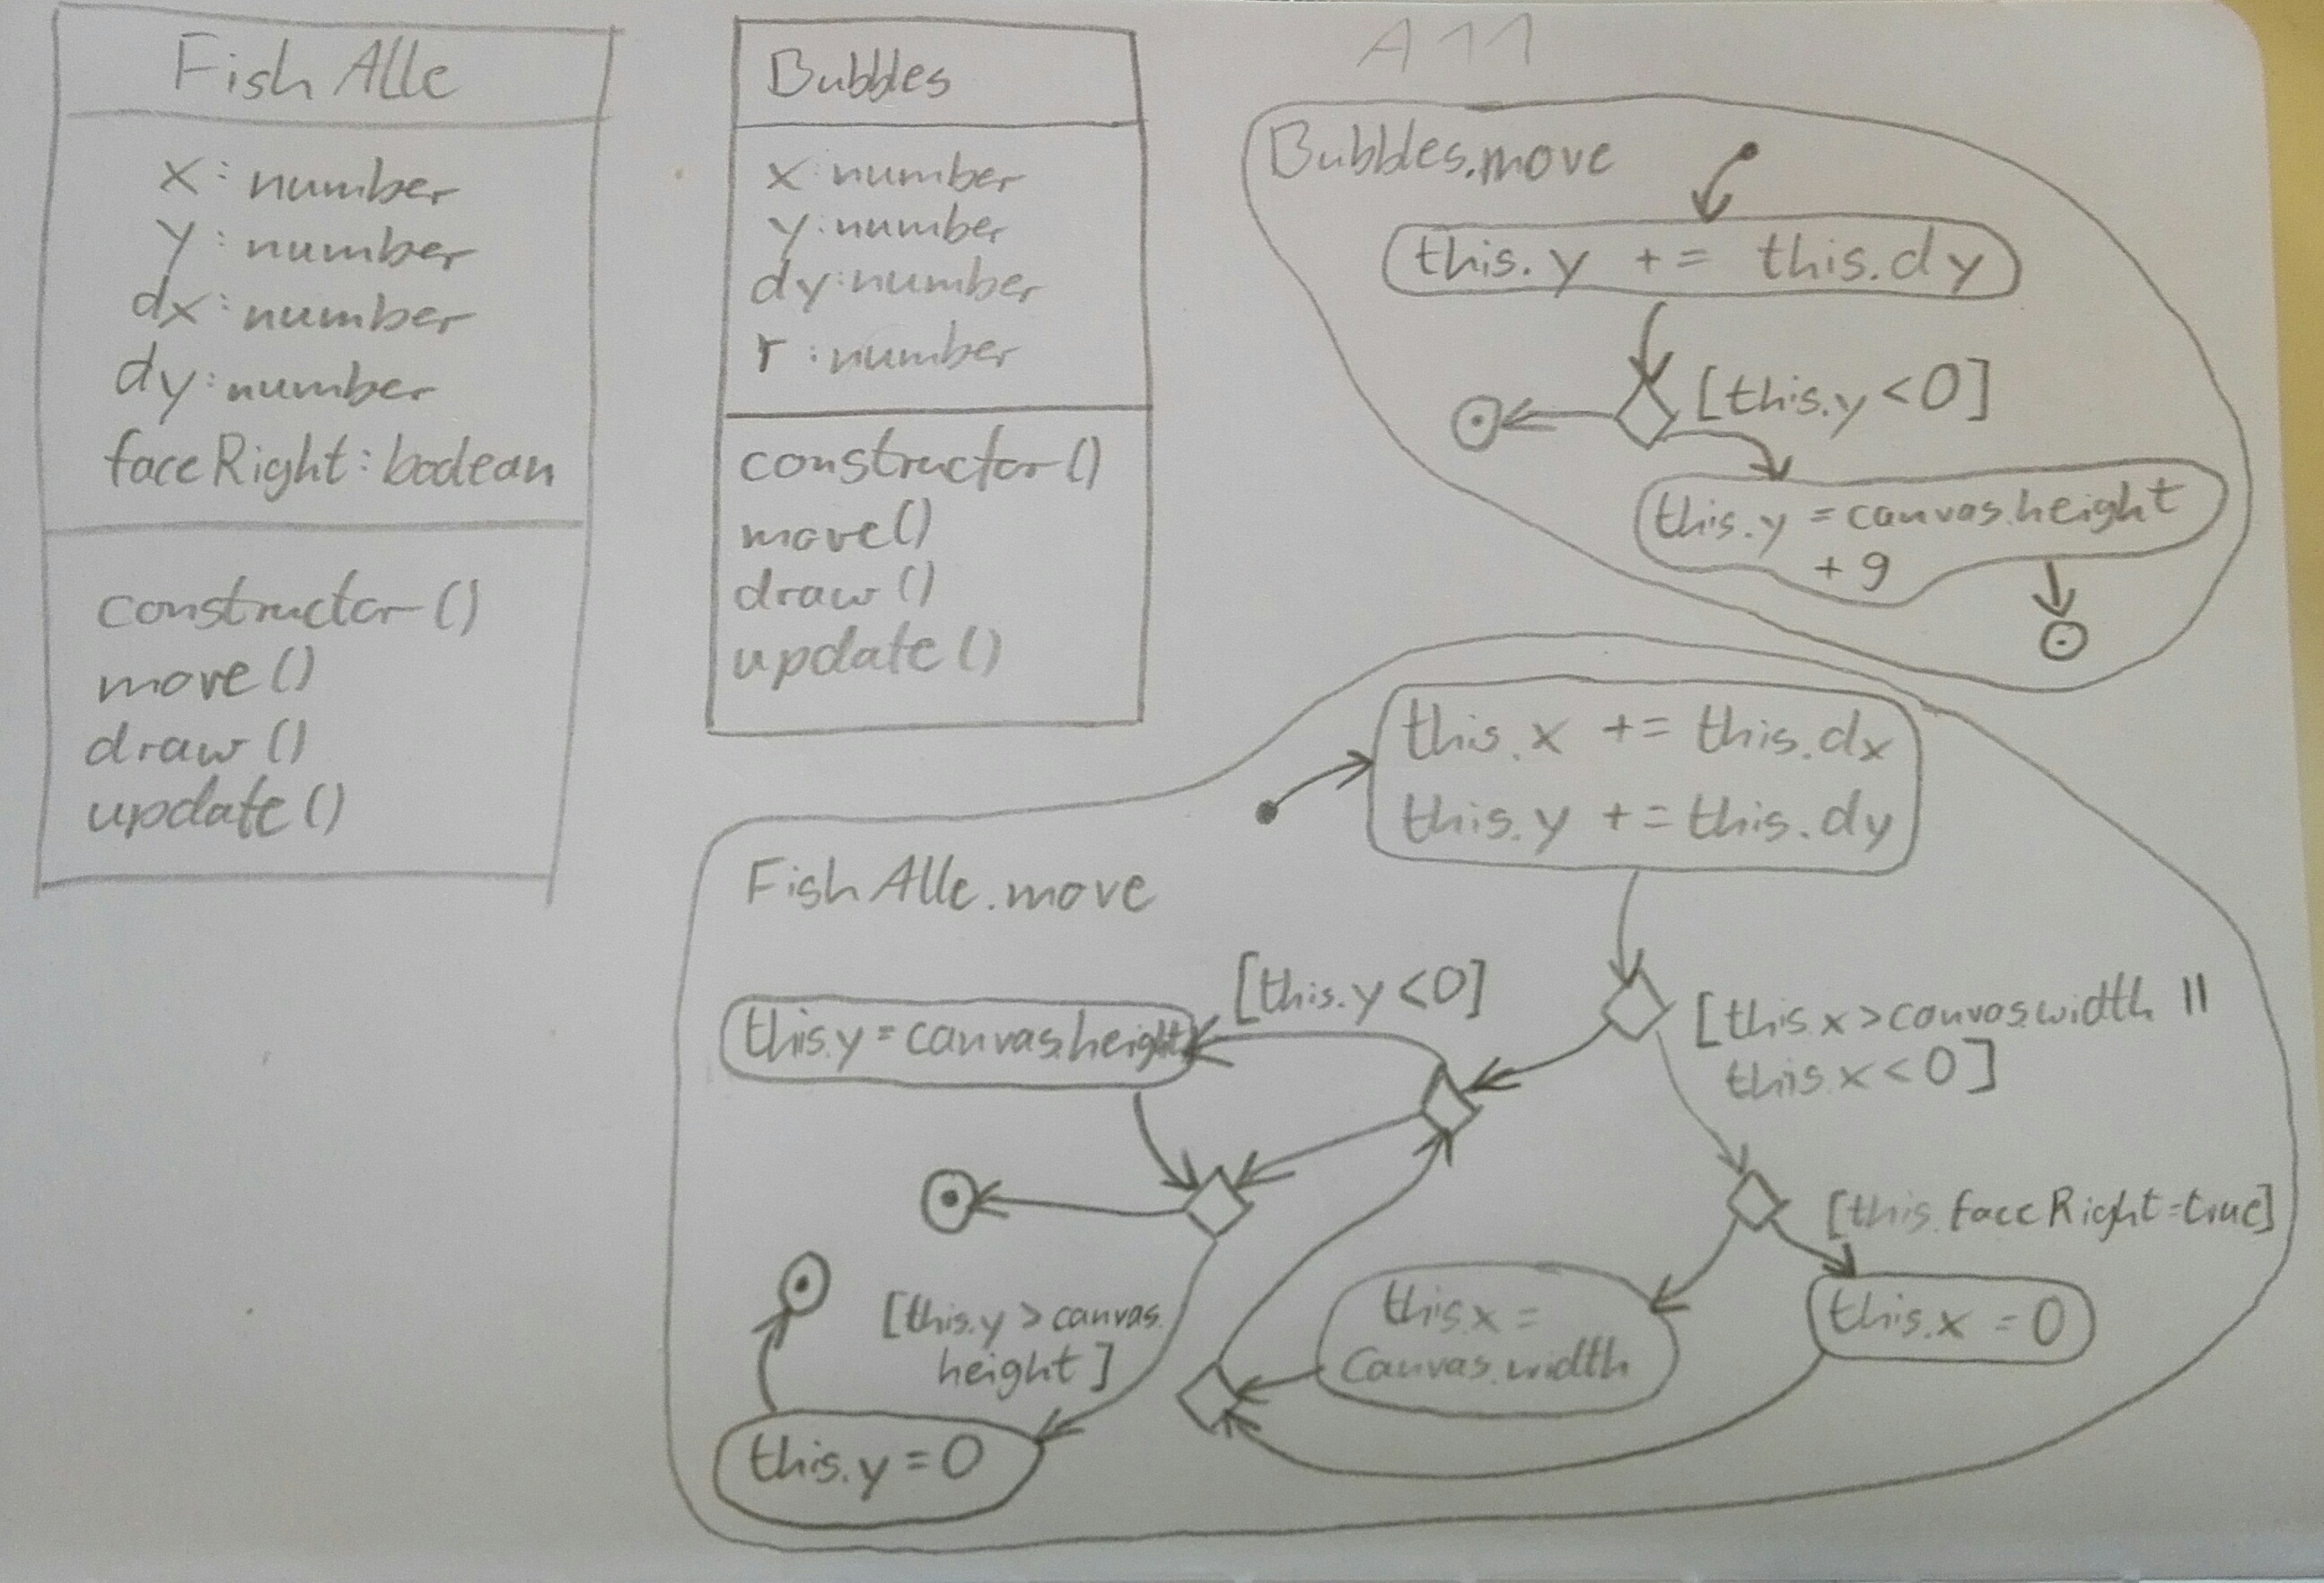 A11
FishAlle
x: number
y: number
dx: number
dy: number
faceRight: boolean
constructor()
move()
draw()
update()
Bubbles
x: number
y: number
dy: number
r: number
constructor()
move()
draw()
update()
Bubbles.move
this.y += this.dy
[this.y < 0]
this.y = canvas.height
+ 9
FishAlle.move
this.x += this.dx
this.y += this.dy
[this.x > canvas.width ||
this.x < 0]
[this.y < 0]
this.y = canvas.height
[this.faceRight = true]
this.x =
canvas.width
this.x = 0
[this.y > canvas.
height]
this.y = 0